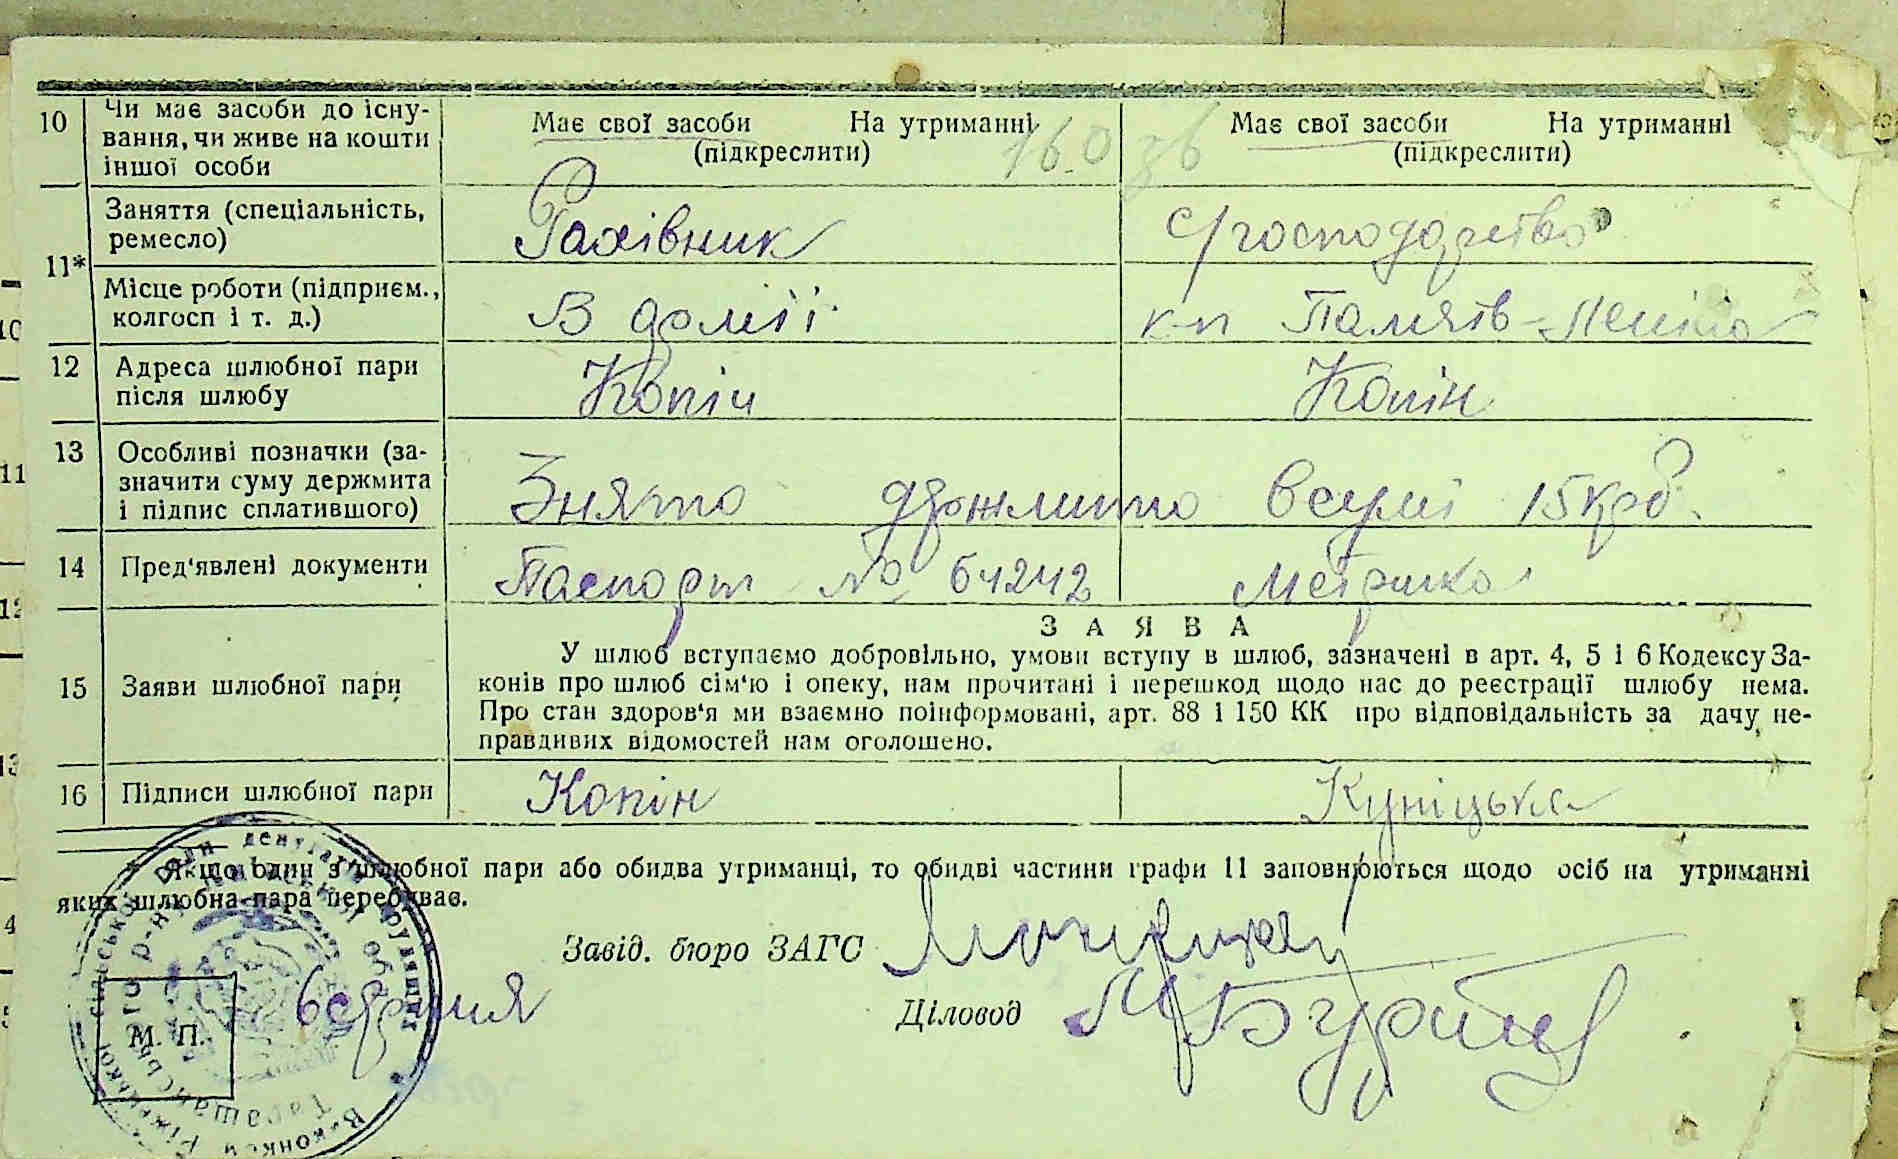 10 Чи має засоби до існу-
вання, чи живе на кошти
іншої особи
Має свої засоби На утриманні
(підкреслити)
Має свої засоби На утриманні
(підкреслити)
11* Заняття (спеціальність,
ремесло)
Рахівник
с/господарство
Місце роботи (підприєм.,
колгосп і т. д.)
В домії
к-п Память-Леніна
12 Адреса шлюбної пари
після шлюбу
Копін
Копін
13 Особливі позначки (за-
значити суму держмита
і підпис сплатившого)
Знято держмито всумі 15крб.
14 Пред'явлені документи
Паспорт № 64242
Метрика
З А Я В А
15 Заяви шлюбної пари
У шлюб вступаємо добровільно, умови вступу в шлюб, зазначені в арт. 4, 5 і 6 Кодексу За-
конів про шлюб сім'ю і опеку, нам прочитані і перешкод щодо нас до реєстрації шлюбу нема.
Про стан здоров'я ми взаємно поінформовані, арт. 88 і 150 КК про відповідальність за дачу не-
правдивих відомостей нам оголошено.
16 Підписи шлюбної пари
Копін
Купіцька
Якщо один з шлюбної пари або обидва утриманці, то обидві частини графи 11 заповнюються щодо осіб на утриманні
яких шлюбна пара перебуває.
Завід. бюро ЗАГС
Діловод
М. П.